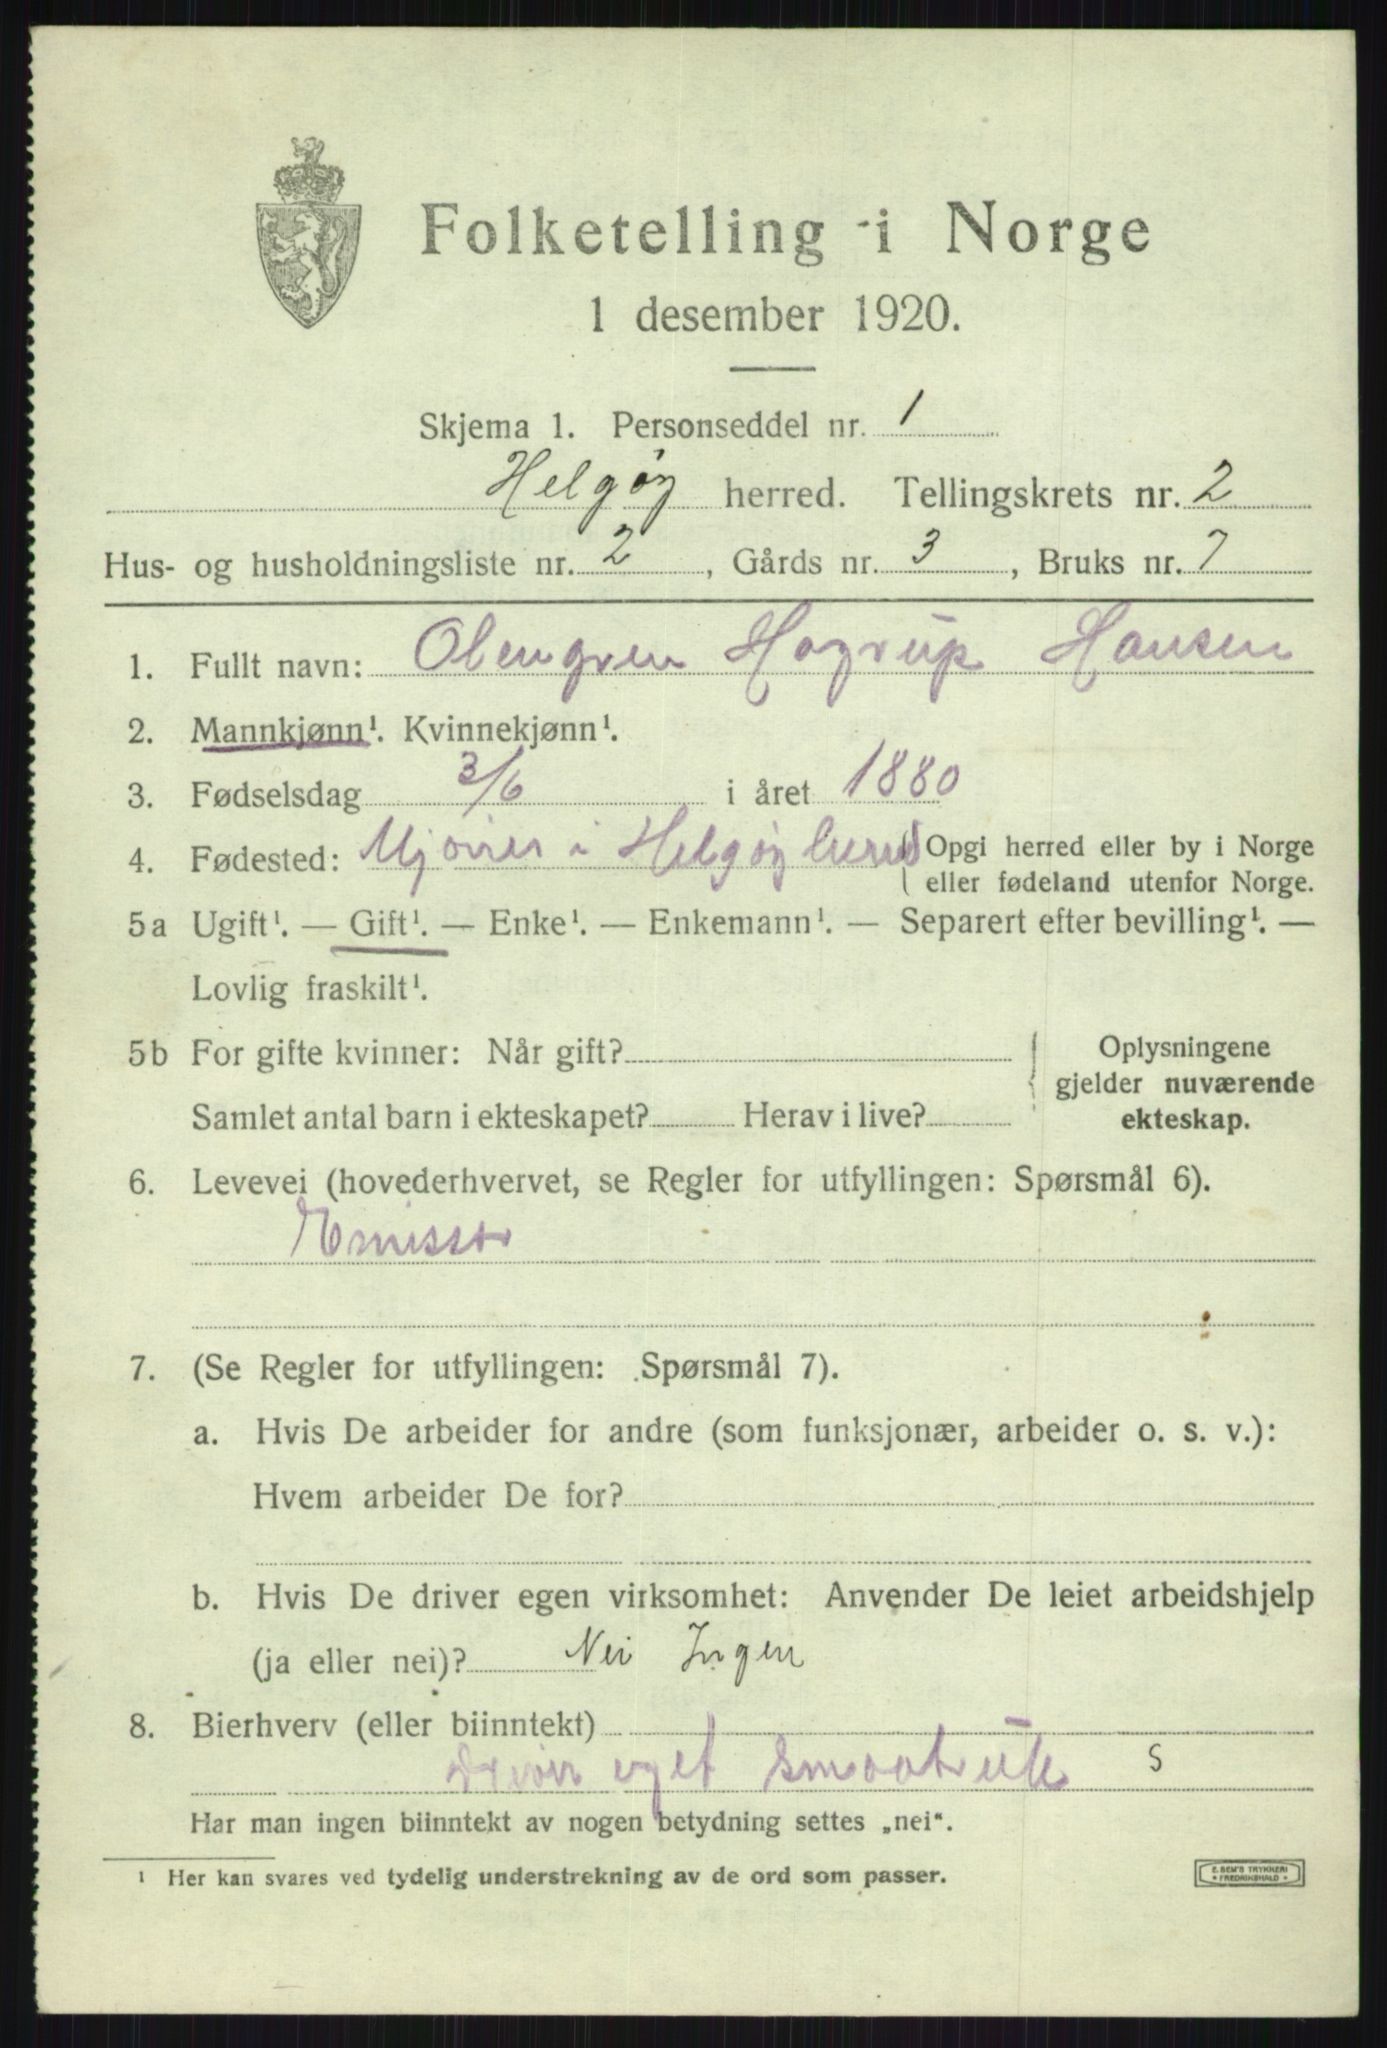 Folketelling i Norge
1 desember 1920.
Skjema 1. Personseddel nr. 1
Helgøy herred. Tellingskrets nr. 2
Hus- og husholdningsliste nr. 2, Gårds nr. 3, Bruks nr. 7
1. Fullt navn: Hagrup Hansen
2. Mannkjønn¹. Kvinnekjønn¹.
3. Fødselsdag 3/6 i året 1880
4. Fødested: i Helgøy herred Opgi herred eller by i Norge
eller fødeland utenfor Norge.
5a Ugift¹. — Gift¹. — Enke¹. — Enkemann¹. — Separert efter bevilling¹. —
Lovlig fraskilt¹.
5b For gifte kvinner: Når gift? Oplysningene
gjelder nuværende
Samlet antal barn i ekteskapet? Herav i live? ekteskap.
6. Levevei (hovederhvervet, se Regler for utfyllingen: Spørsmål 6).
Emissær
7. (Se Regler for utfyllingen: Spørsmål 7).
a. Hvis De arbeider for andre (som funksjonær, arbeider o. s. v.):
Hvem arbeider De for?
b. Hvis De driver egen virksomhet: Anvender De leiet arbeidshjelp
(ja eller nei)? Nei Ingen
8. Bierhverv (eller biinntekt)
Driver eget smaabruk S
Har man ingen biinntekt av nogen betydning settes „nei“.
¹ Her kan svares ved tydelig understrekning av de ord som passer.
E. SEM'S TRYKKERI
• FREDRIKSHALD •